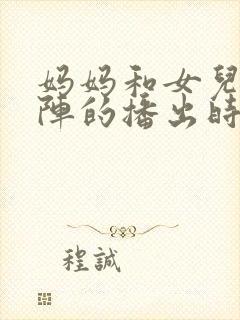 妈妈和女兒
陣的播出時
程誠